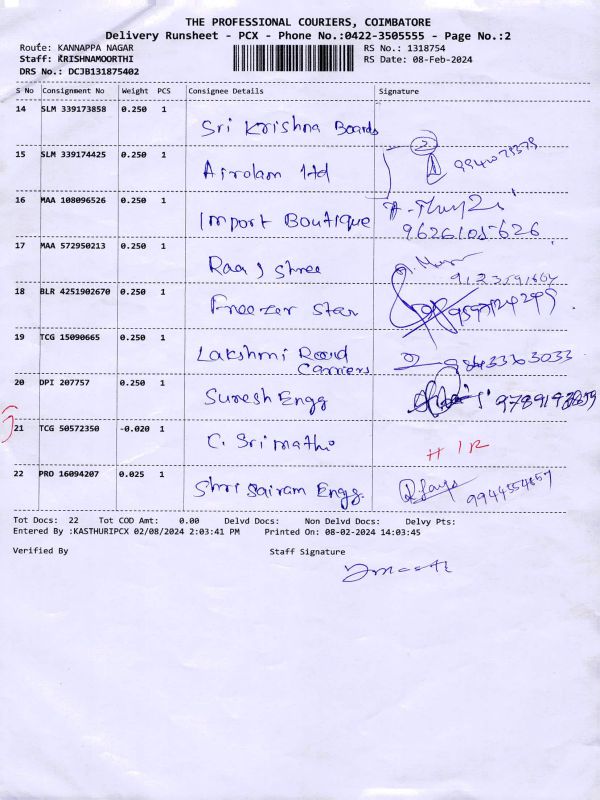 THE PROFESSIONAL COURIERS, COIMBATORE
Delivery Runsheet - PCX - Phone No.:0422-3505555 - Page No.:2
Route: KANNAPPA NAGAR RS No.: 1318754
Staff: KRISHNAMOORTHI RS Date: 08-Feb-2024
DRS No.: DCJB131875402
S No Consignment No Weight PCS Consignee Details Signature
14 SLM 339173858 0.250 1 Sri Krishna Boards
15 SLM 339174425 0.250 1 Airolam ltd 2
16 MAA 108096526 0.250 1 Import Boutique 9626105626
17 MAA 572950213 0.250 1 Raaj Shree
18 BLR 4251902670 0.250 1 Freezer Star
19 TCG 15090665 0.250 1 Lakshmi Road
Carriers 9843363033
20 DPI 207757 0.250 1 Suresh Engg
21 TCG 50572350 -0.020 1 C. Srimathi
22 PRO 16094207 0.025 1 Shri Sairam Engg.
Tot Docs: 22 Tot COD Amt: 0.00 Delvd Docs: Non Delvd Docs: Delvy Pts:
Entered By :KASTHURIPCX 02/08/2024 2:03:41 PM Printed On: 08-02-2024 14:03:45
Verified By Staff Signature